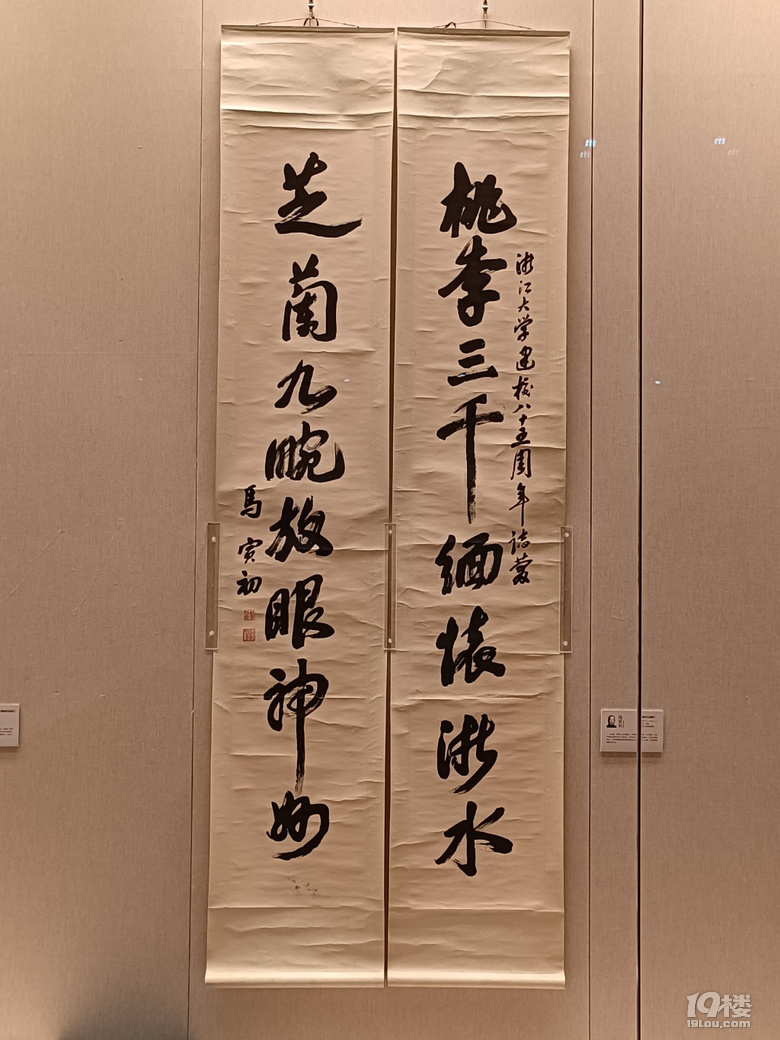 桃李三千緬懷浙水
浙江大学建校八十五周年誌慶
芝蘭九畹放眼神州
馬寅初
19楼
19lou.com